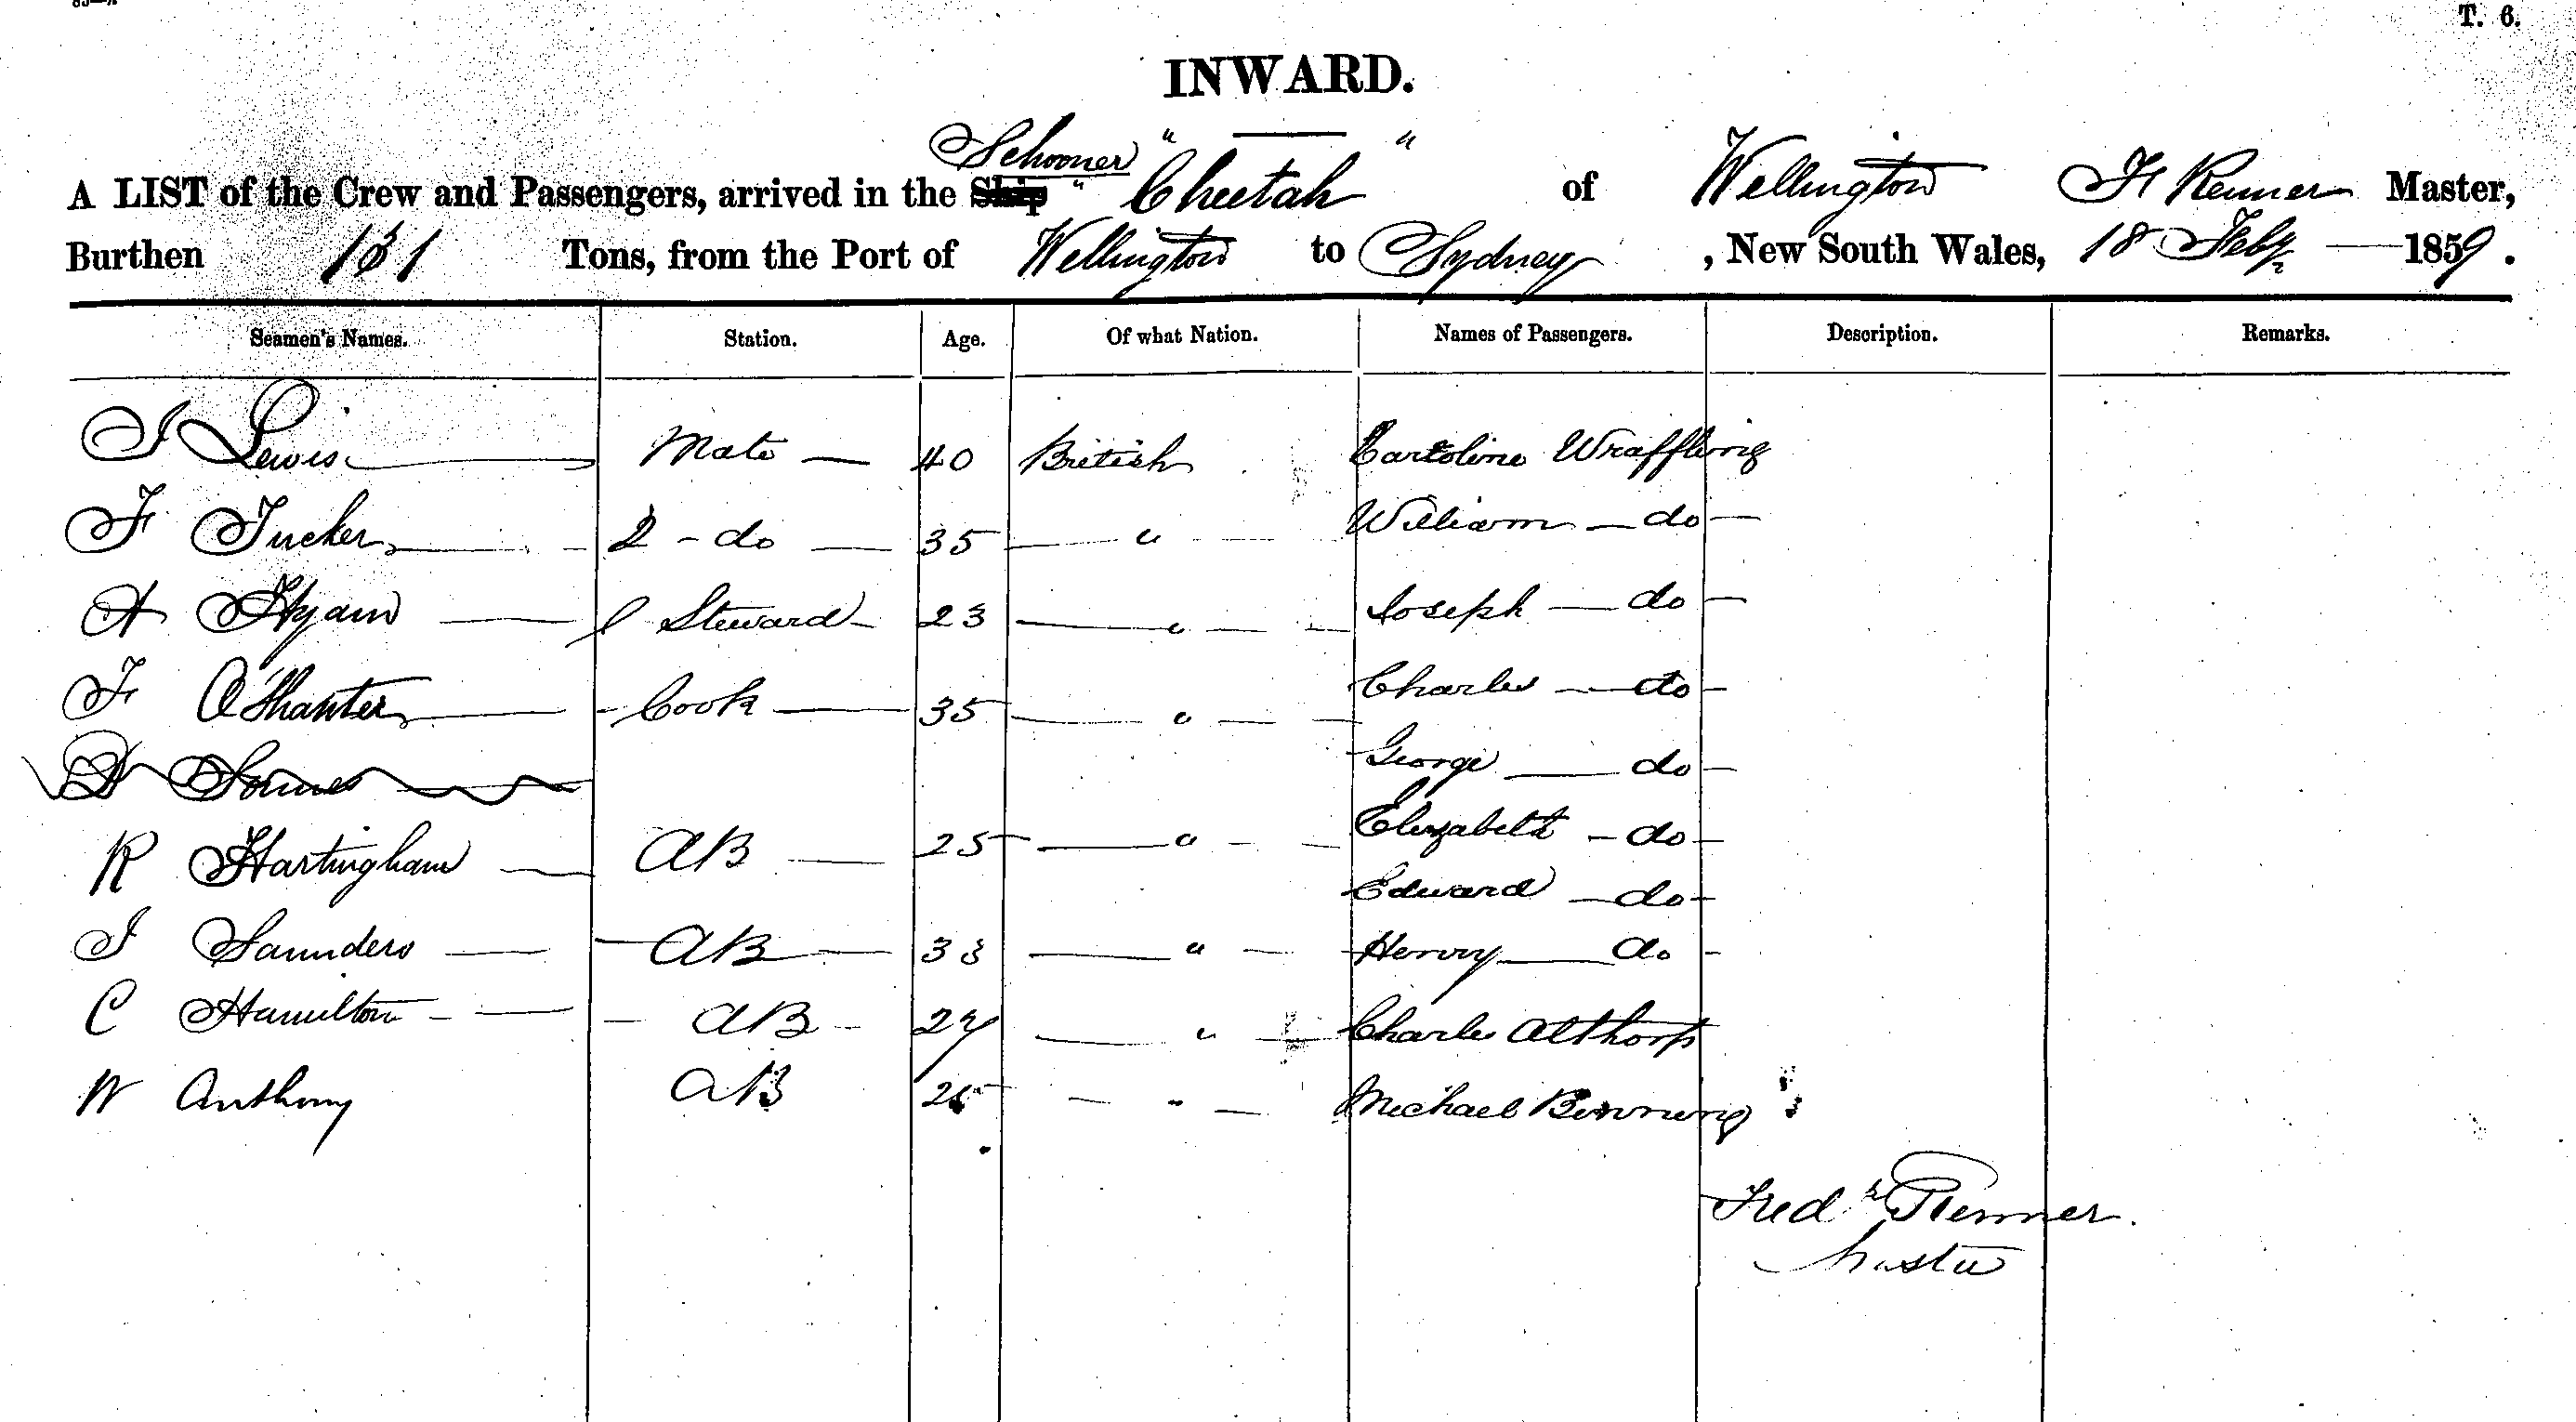 T. 6.
INWARD.
Schooner
A LIST of the Crew and Passengers, arrived in the Ship "Cheetah" of Wellington F Renner Master,
Burthen 131 Tons, from the Port of Wellington to Sydney, New South Wales, 18 Feby 1859.
Seamen's Names. Station. Age. Of what Nation. Names of Passengers. Description. Remarks.
J Lewis Mate 40 British Caroline Wraffling
F Tucker 2 - do 35 " William do
H Hyam Steward 23 " Joseph do
F O'Shanter Cook 35 " Charles do
George do
R Hartingham AB 25 " Elizabeth do
Edward do
J Saunders AB 33 " Henry do
C Hamilton AB 27 " Charles Althorp
W Anthony AB 25 " Michael
Fredk Renner.
Master